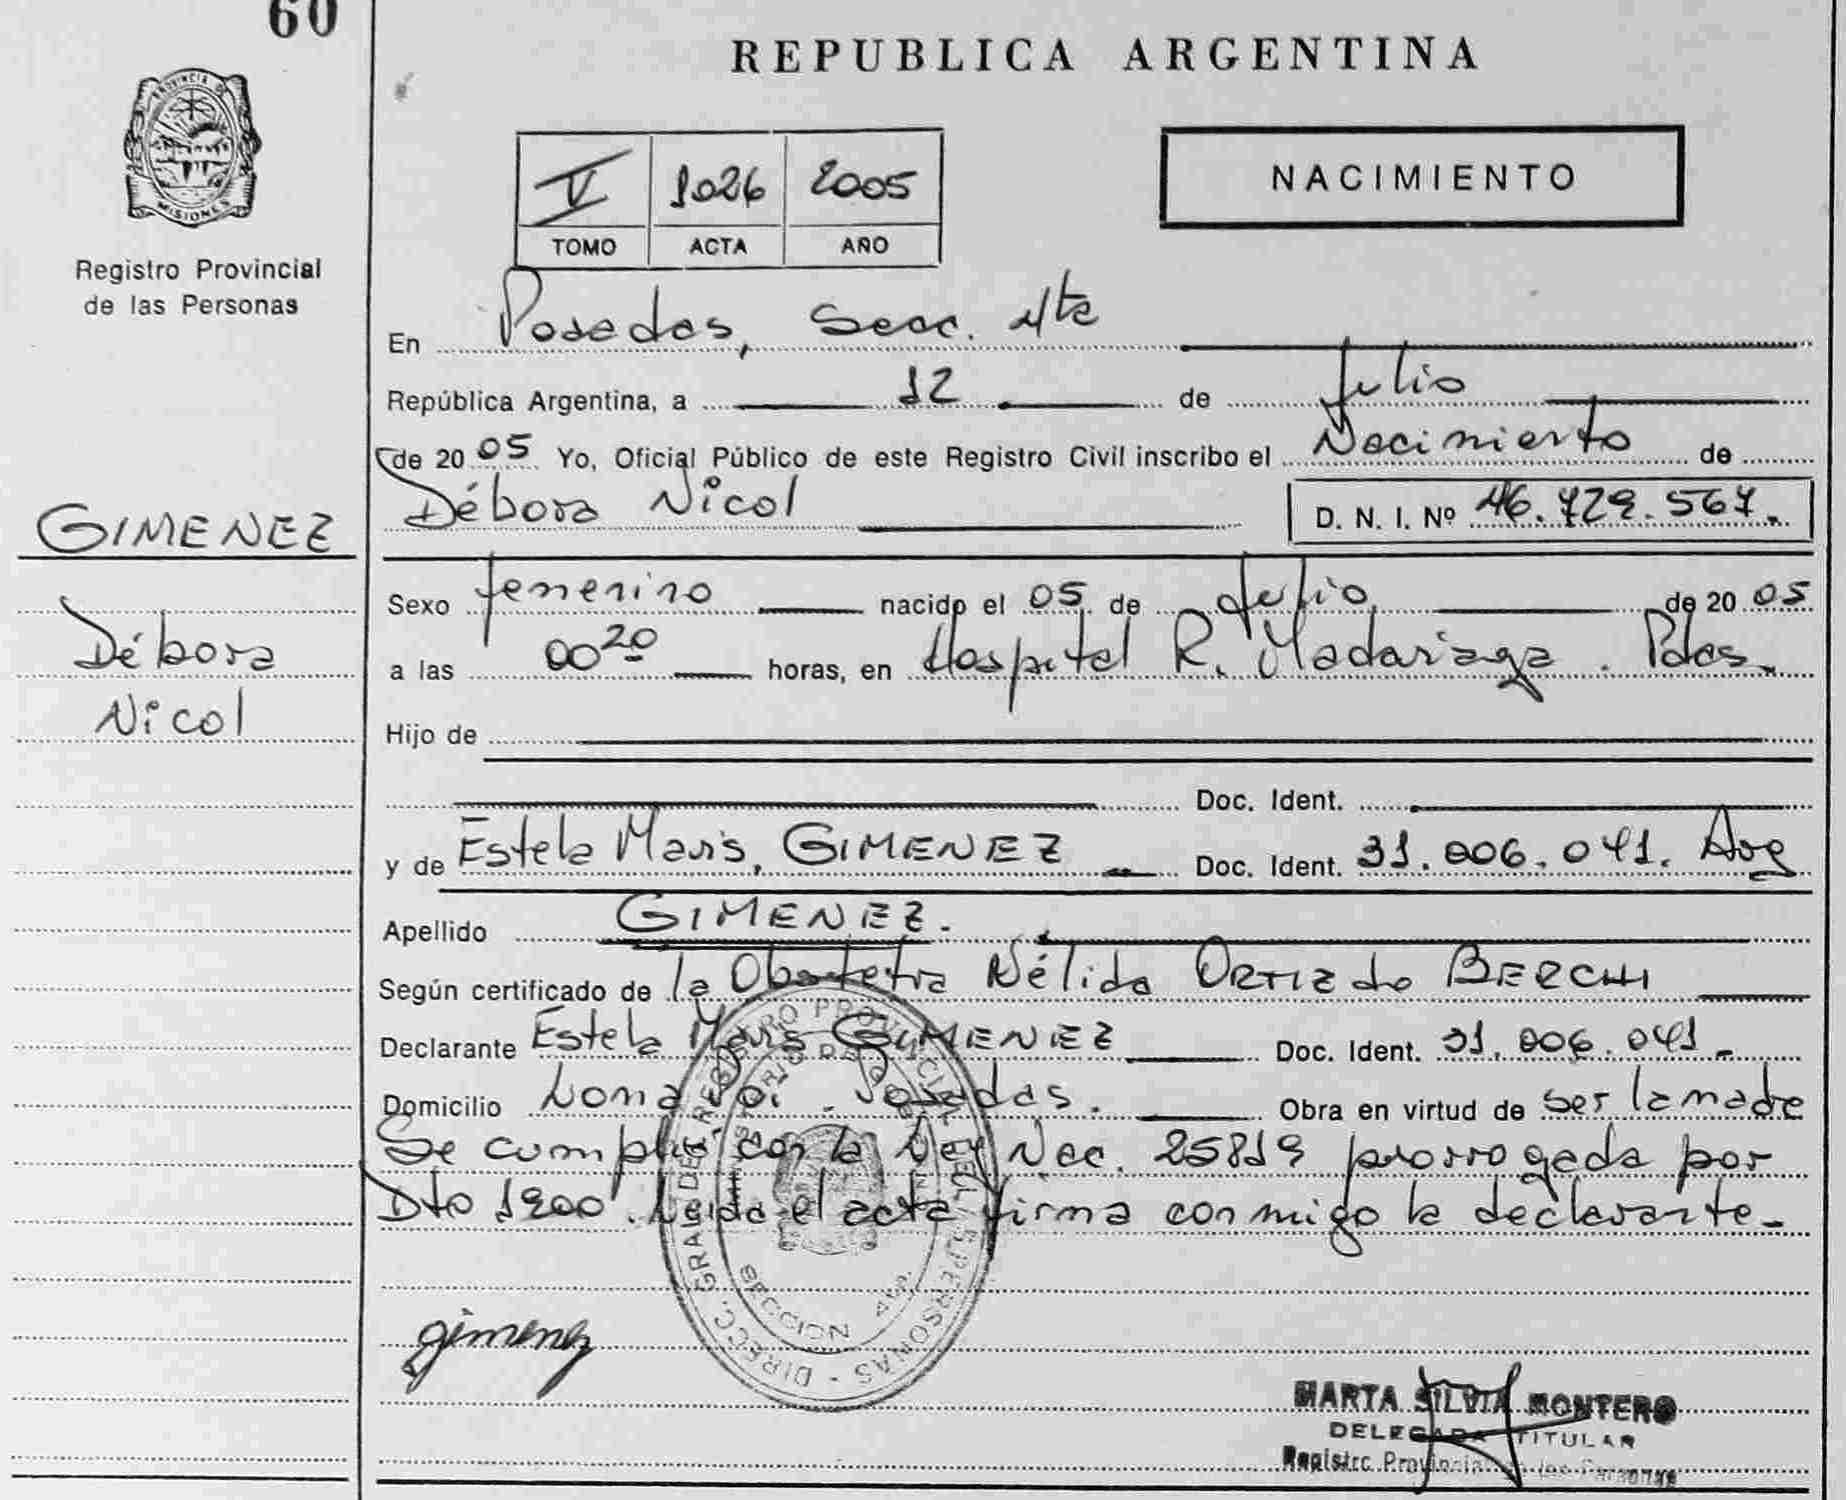 60
PROVINCIA DE
MISIONES
Registro Provincial
de las Personas
GIMENEZ
Débora
Nicol
REPUBLICA ARGENTINA
V 1026 2005
TOMO ACTA AÑO
NACIMIENTO
En Posadas, Secc. 4ta
República Argentina, a 12 de Julio
de 2005 Yo, Oficial Público de este Registro Civil inscribo el Nacimiento de
Débora Nicol D. N. I. Nº 46.729.567.
Sexo femenino nacido el 05 de Julio de 2005
a las 00 20 horas, en Hospital R. Madariaga. Pdas.
Hijo de
Doc. Ident.
y de Estela Maris, GIMENEZ Doc. Ident. 31.006.041. Arg
Apellido GIMENEZ.
Según certificado de la Obstetra Nélida ORTIZ de BERCHI
Declarante Estela Maris GIMENEZ Doc. Ident. 31.006.041.
Domicilio Loma Poi. Posadas. Obra en virtud de ser la madre
Se cumplió con la Ley Nac. 25819 prorrogada por
Dto 1200. Leida el acta firma conmigo la declarante.
DIRECC. GRAL. DEL REGISTRO PROVINCIAL DE LAS PERSONAS
SECCION 4ta.
gimenez
MARTA SILVIA MONTERO
DELEGADA TITULAR
Registro Provincial de las Personas